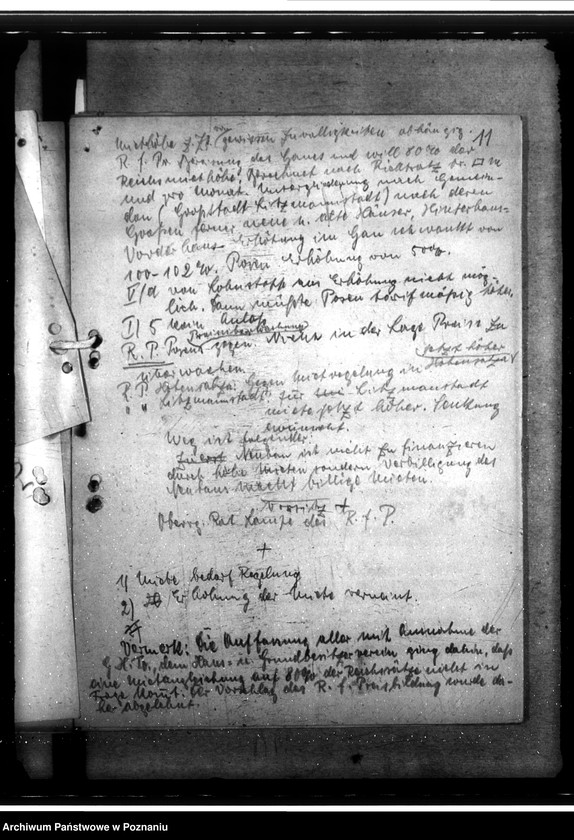 Miethöhe z. Zt. von gewissen Zufälligkeiten abhängig. 11
R. f. Pr. Steuerung des Gaues und will 80% der
Reichsmiethöhe. Berechnet nach Richtsatz pro □ m
und pro Monat. Untergliederung nach Gemein-
den (Großstadt Litzmannstadt) nach deren
Größen ferner neue u. alte Häuser, Hinterhaus-
Vorderhaus. Erhöhung im Gau schwankt von
100-102%. Posen Erhöhung von 50%.
II/d von Lohnstopp aus Erhöhung nicht mög-
lich. Dann müßte Posen tarifmäßig
I/5 kein Anlaß
R. P. Posen gegen. Preisüberwachung nicht in der Lage Preise zu
überwachen. jetzt höher
R. P. Hohensalza: Gegen Mietregelung in Hohensalza
" " Litzmannstadt: für Litzmannstadt
Miete jetzt höher. Senkung
erwünscht.
Weg ist folgender:
Neubau ist nicht zu finanzieren
durch hohe Mieten sondern Verbilligung des
Neubaus macht billige Mieten.
Vorsitz
Oberreg. Rat Kampf des R. f. P.
+
1) Miete bedarf Regelung
2) Erhöhung der Miete verneint.
Vermerk: Die Auffassung aller mit Ausnahme der
G. H. To., dem Haus- u. Grundbesitzerverein ging dahin, daß
eine Mietangleichung auf 80% der Reichssätze nicht in
Frage kommt. Der Vorschlag des R. f. Preisbildung wurde da-
her abgelehnt.
Archiwum Państwowe w Poznaniu